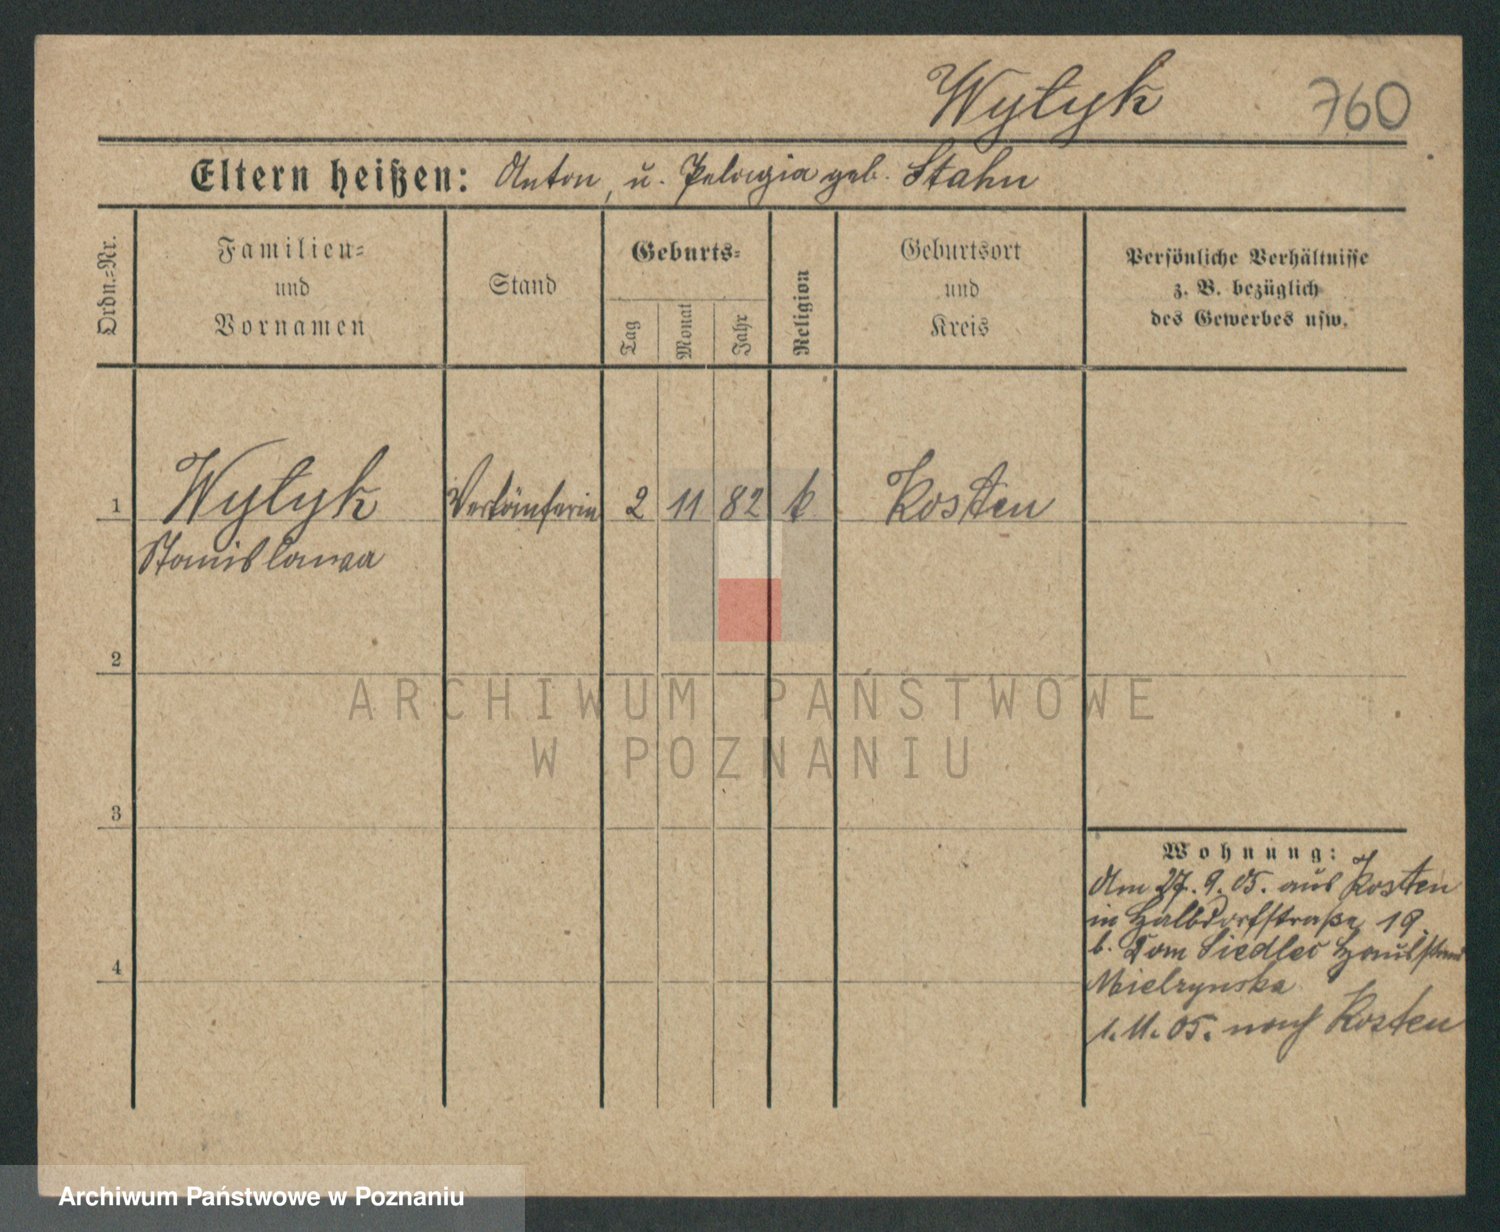 Wytyk 760
Eltern heißen: Anton, u. Pelagia geb. Stahn
Ordn.=Nr.
Familien=
und
Vornamen
Stand
Geburts=
Tag
Monat
Jahr
Religion
Geburtsort
und
Kreis
Persönliche Verhältnisse
z. B. bezüglich
des Gewerbes usw.
1 Wytyk Verkäuferin 2 11 82 k Kosten
Stanislawa
2
ARCHIWUM PAŃSTWOWE
W POZNANIU
3
Wohnung:
Am 27. 9. 05. aus Kosten
in Halbdorfstraße 19.
b. Dom Siedler
4
Mielzynska
1. 11. 05. nach Kosten
Archiwum Państwowe w Poznaniu